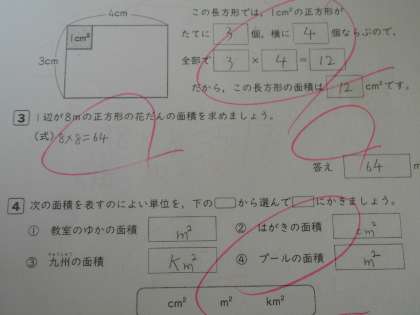 4cm
この長方形では、1cm²の正方形が
1cm²
たてに 3 個、横に 4 個ならぶので、
3cm
全部で 3 × 4 = 12
だから、この長方形の面積は 12 cm²です。
3 1辺が8mの正方形の花だんの面積を求めましょう。
(式) 8×8=64
答え 64 m
4 次の面積を表すのによい単位を、下の から選んで にかきましょう。
① 教室のゆかの面積 m² ② はがきの面積 cm²
③ 九州の面積 km² ④ プールの面積 m²
cm² m² km²